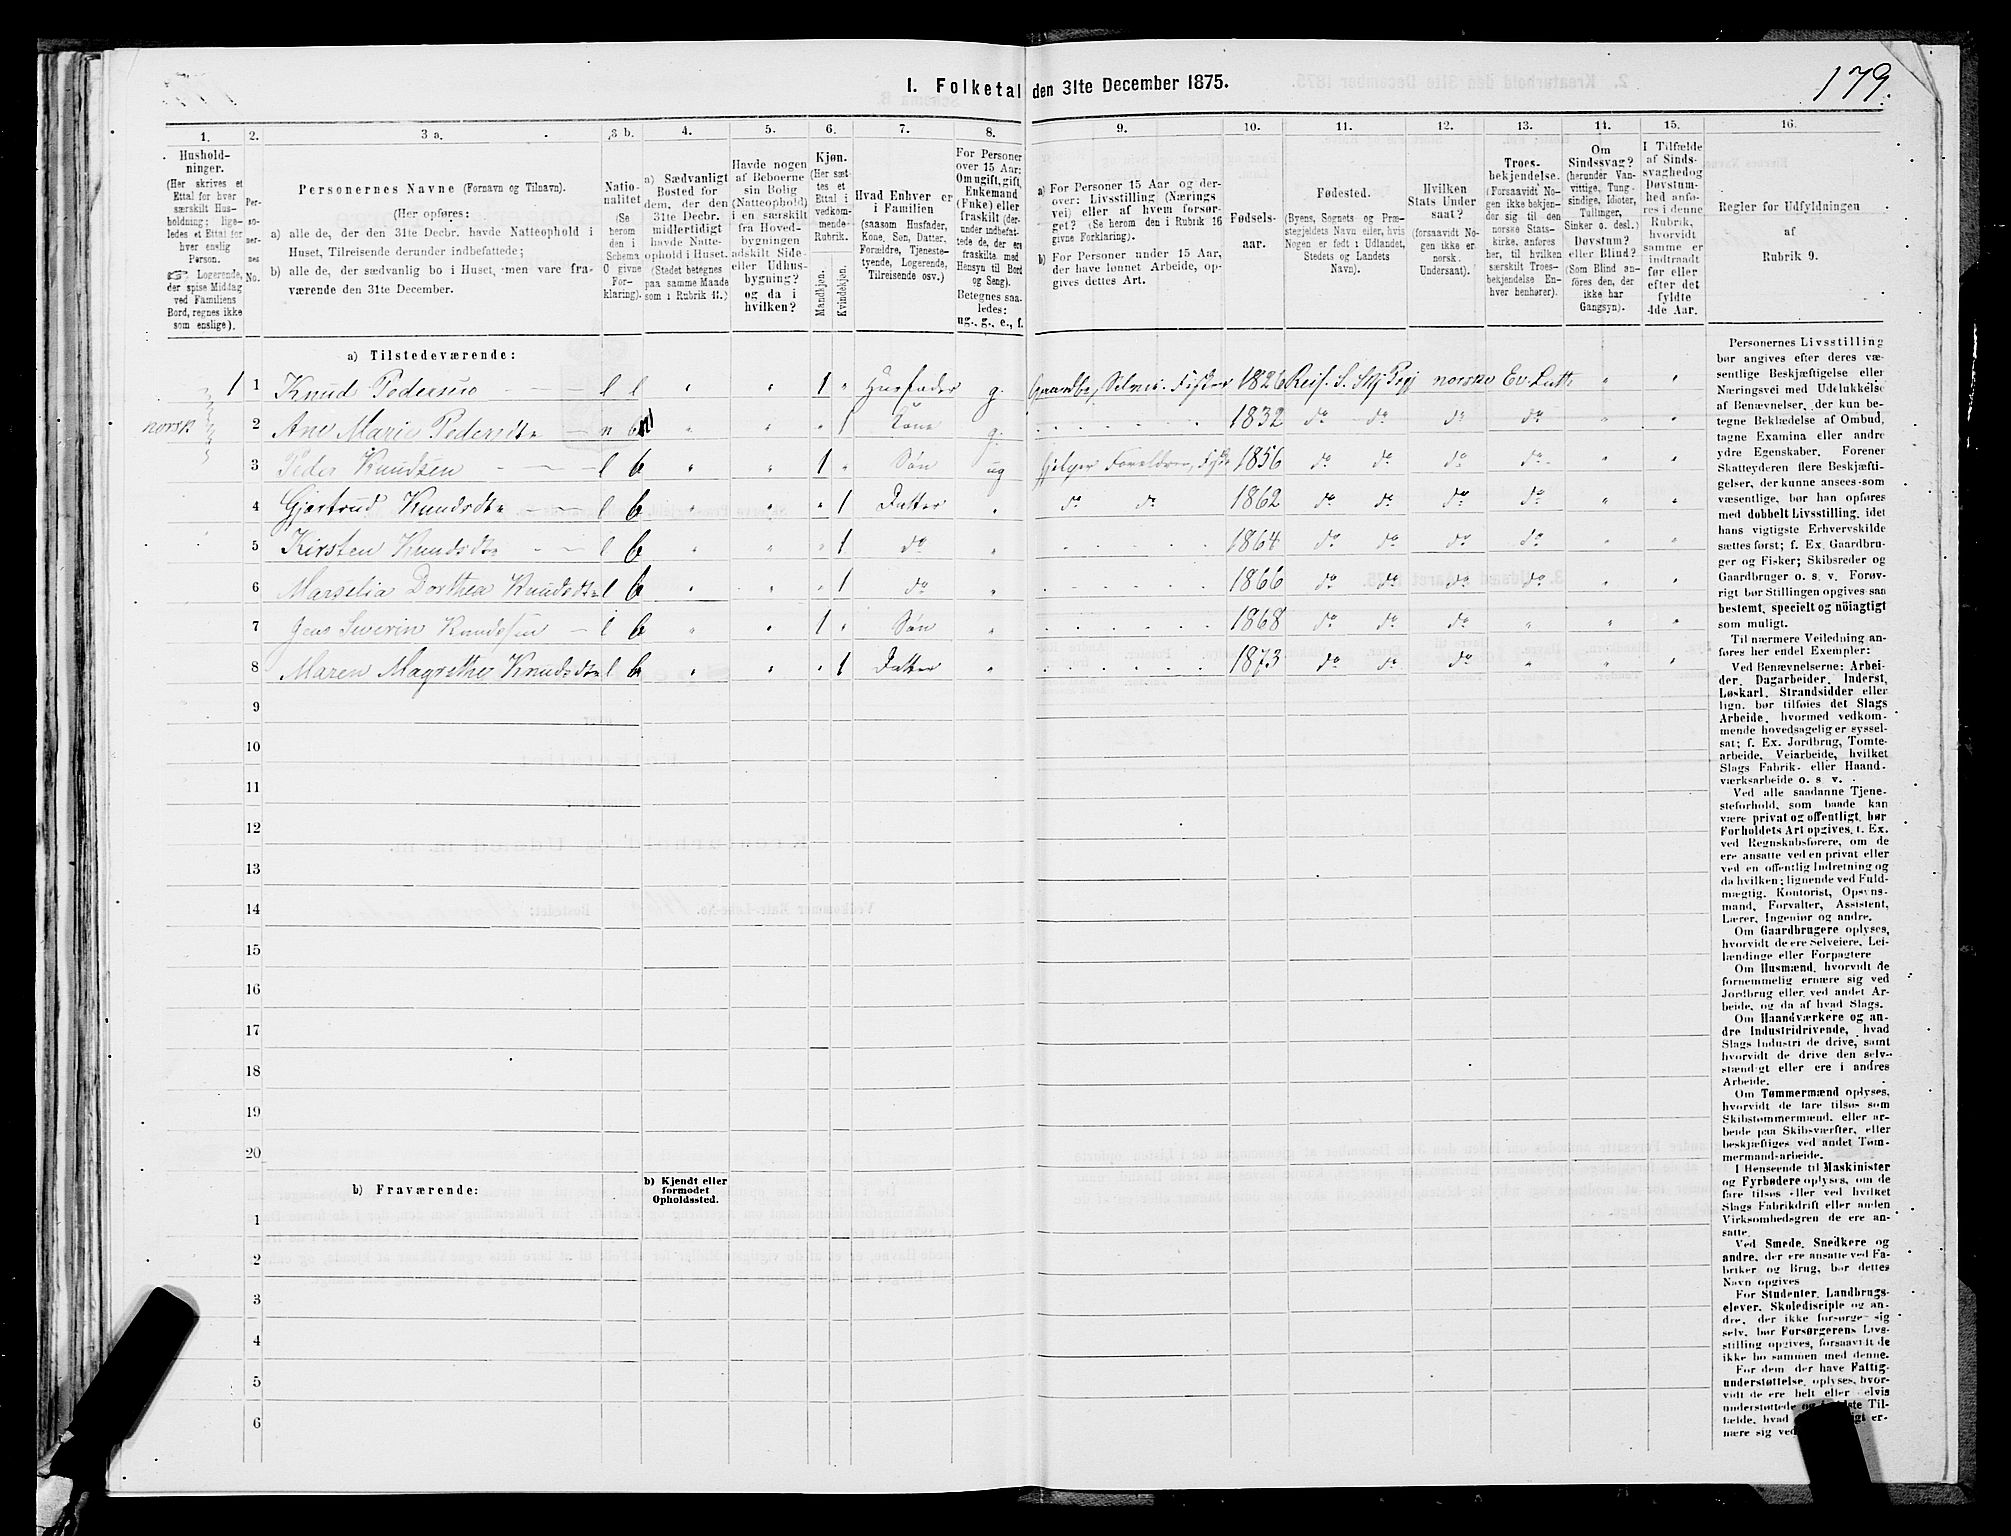 I. Folketal den 31te December 1875.
179.
1. 2. 3 a. 3 b. 4. 5. 6. 7. 8. 9. 10. 11. 12. 13. 14. 15. 16.
Hushold-
ninger.
(Her skrives et
Ettal for hver
særskilt Hus-
holdning; lige-
ledes et Ettal for
hver enslig
Person.
Logerende,
der spise Middag
ved Familiens
Bord, regnes ikke
som enslige).
Per-
so-
ner-
nes
No.
Personernes Navne (Fornavn og Tilnavn).
(Her opføres:
a) alle de, der den 31te Decbr. havde Natteophold i
Huset, Tilreisende derunder indbefattede;
b) alle de, der sædvanlig bo i Huset, men vare fra-
værende den 31te December.
Natio-
nalitet
(Se
herom
den i
Schema
O givne
For-
klaring).
a) Sædvanligt
Bosted for
dem, der den
31te Decbr.
midlertidigt
havde Natte-
ophold i Huset.
(Stedet betegnes
paa samme Maade
som i Rubrik 11.)
Havde nogen
af Beboerne
sin Bolig
(Natteophold)
i en særskilt
fra Hoved-
bygningen
adskilt Side-
eller Udhus-
bygning?
og da i
hvilken?
Kjøn.
(Her sæt-
tes et
Ettal i
vedkom-
mende
Rubrik.
Mandkjøn.
Kvindekjøn.
Hvad Enhver er
i Familien
(saasom Husfader,
Kone, Søn, Datter,
Forældre, Tjeneste-
tyende, Logerende,
Tilreisende osv.)
For Personer
over 15 Aar:
Om ugift, gift,
Enkemand
(Enke) eller
fraskilt (der-
under indbefat-
tede de, der ere
fraskilte med
Hensyn til Bord
og Seng).
Betegnes saa-
ledes:
ug., g., e., f.
a) For Personer 15 Aar og der-
over: Livsstilling (Nærings
vei) eller af hvem forsør-
get? (Se herom den i Rubrik 16
givne Forklaring).
b) For Personer under 15 Aar,
der have lønnet Arbeide, op-
gives dettes Art.
Fødsels-
aar.
Fødested.
(Byens, Sognets og Præ-
stegjeldets Navn eller, hvis
Nogen er født i Udlandet,
Stedets og Landets
Navn).
Hvilken
Stats Under
saat?
(forsaavidt No-
gen ikke er
norsk
Undersaat).
Troes-
bekjendelse.
(Forsaavidt No-
gen ikke bekjen-
der sig til den
norske Stats-
kirke, anføres
her, til hvilken
særskilt Troes-
bekjendelse En-
hver henhører).
Om
Sindssvag?
(herunder Van-
vittige, Tung-
sindige, Idioter,
Tullinger,
Sinker o. desl.)
Døvstum?
eller Blind?
(Som Blind an-
føres den, der
ikke har
Gangsyn).
I Tilfælde
af Sinds-
svaghed og
Døvstum-
hed anfø-
res i denne
Rubrik,
hvorvidt
samme er
indtraadt
før eller
efter det
fyldte
4de Aar.
Regler for Udfyldningen
af
Rubrik 9.
a) Tilstedeværende:
1 1 Knud Pedersen l l " " 1 " Husfader g. Gaardbr, Selvei. Fisker 1826 norske Ev. Luth " "
norsk 2 Ane Marie Pedersdtr n " " " 1 Kone g. 1832 do do do do " "
3 Peder Knudsen l b " " 1 " Søn ug hjelper Foreldren, 1856 do do do do " "
4 Gjertrud Knudsdtr l b " " " 1 Datter " do do 1862 do do do do " "
5 Kirsten Knudsdtr l b " " " 1 do " 1864 do do do do " "
6 Marselia Dorthea Knudsdtr l b " " " 1 do " 1866 do do do do " "
7 Jens Severin Knudsen l b " " 1 " Søn " 1868 do do do " " "
8 Maren Magrethe Knudsdtr l b " " " 1 Datter " 1873 do do do " " "
9
10
11
12
13
14
15
16
17
18
19
20
b) Fraværende:
b) Kjendt eller
formodet
Opholdssted.
1
2
3
4
5
6
Personernes Livsstilling
bør angives efter deres væ-
sentlige Beskjæftigelse eller
Næringsvei med Udelukkelse
af Benævnelser, der kun be-
tegne Beklædelse af Ombud,
tagne Examina eller andre
ydre Egenskaber. Forener
Skatteyderen flere Beskjæfti-
gelser, der kunne ansees som
væsentlige, bør han opføres
med dobbelt Livsstilling, idet
hans vigtigste Erhvervskilde
sættes først; f. Ex. Gaardbru-
ger og Fisker; Skibsreder og
Gaardbruger o. s. v. Forøv-
rigt bør Stillingen opgives saa
bestemt, specielt og nöiagtigt
som muligt.
Til nærmere Veiledning an-
føres her endel Exempler:
Ved Benævnelserne: Arbei-
der, Dagarbeider, Inderst,
Løskarl, Strandsidder eller
lign. bør tilføies det Slags
Arbeide, hvormed vedkom-
mende hovedsagelig er syssel-
sat; f. Ex. Jordbrug, Tomte-
arbeide, Veiarbeide, hvilket
Slags Fabrik- eller Haand-
værksarbeide o. s. v.
Ved alle saadanne Tjene-
steforhold, som baade kan
være privat og offentligt, bør
Forholdets Art opgives, t. Ex.
ved Regnskabsførere, om de
ere ansatte ved en privat eller
ved en offentlig Indretning og
da hvilken; lignende ved Fuld-
mægtig, Kontorist, Opsyns-
mand, Forvalter, Assistent,
Lærer, Ingeniør og andre.
Om Gaardbrugere oplyses,
hvorvidt de ere Selveiere, Lei-
lændinge eller Forpagtere
Om Husmænd, hvorvidt de
fornemmelig ernære sig ved
Jordbrug eller ved andet Ar-
beide, og da af hvad Slags.
Om Haandværkere og an-
dre Industridrivende, hvad
Slags Industri de drive, samt
hvorvidt de drive den selv-
stændigt eller ere i andres
Arbeide.
Om Tømmermænd oplyses,
hvorvidt de fare tilsøs som
Skibstømmermænd, eller ar-
beide paa Skibsværfter, eller
beskjæftiges ved andet Tøm-
mermandsarbeide.
I Henseende til Maskinister
og Fyrbødere oplyses, om de
fare tilsøs eller ved hvilket
Slags Fabrikdrift eller anden
Virksomhedsgren de ere an-
satte.
Ved Smede, Snedkere og
andre, der ere ansatte ved Fa-
briker og Brug, bør dettes
Navn opgives
For Studenter, Landbrugs-
elever, Skoledisciple og an-
dre, der ikke forsørge sig
selv, bør Forsørgerens Livs-
stilling opgives, forsaavidt de
ikke bo sammen med denne.
For dem, der have Fattig-
understøttelse, oplyses, hvor-
vidt de ere helt eller
understøttede og
fælde, hvad
nære sig ved